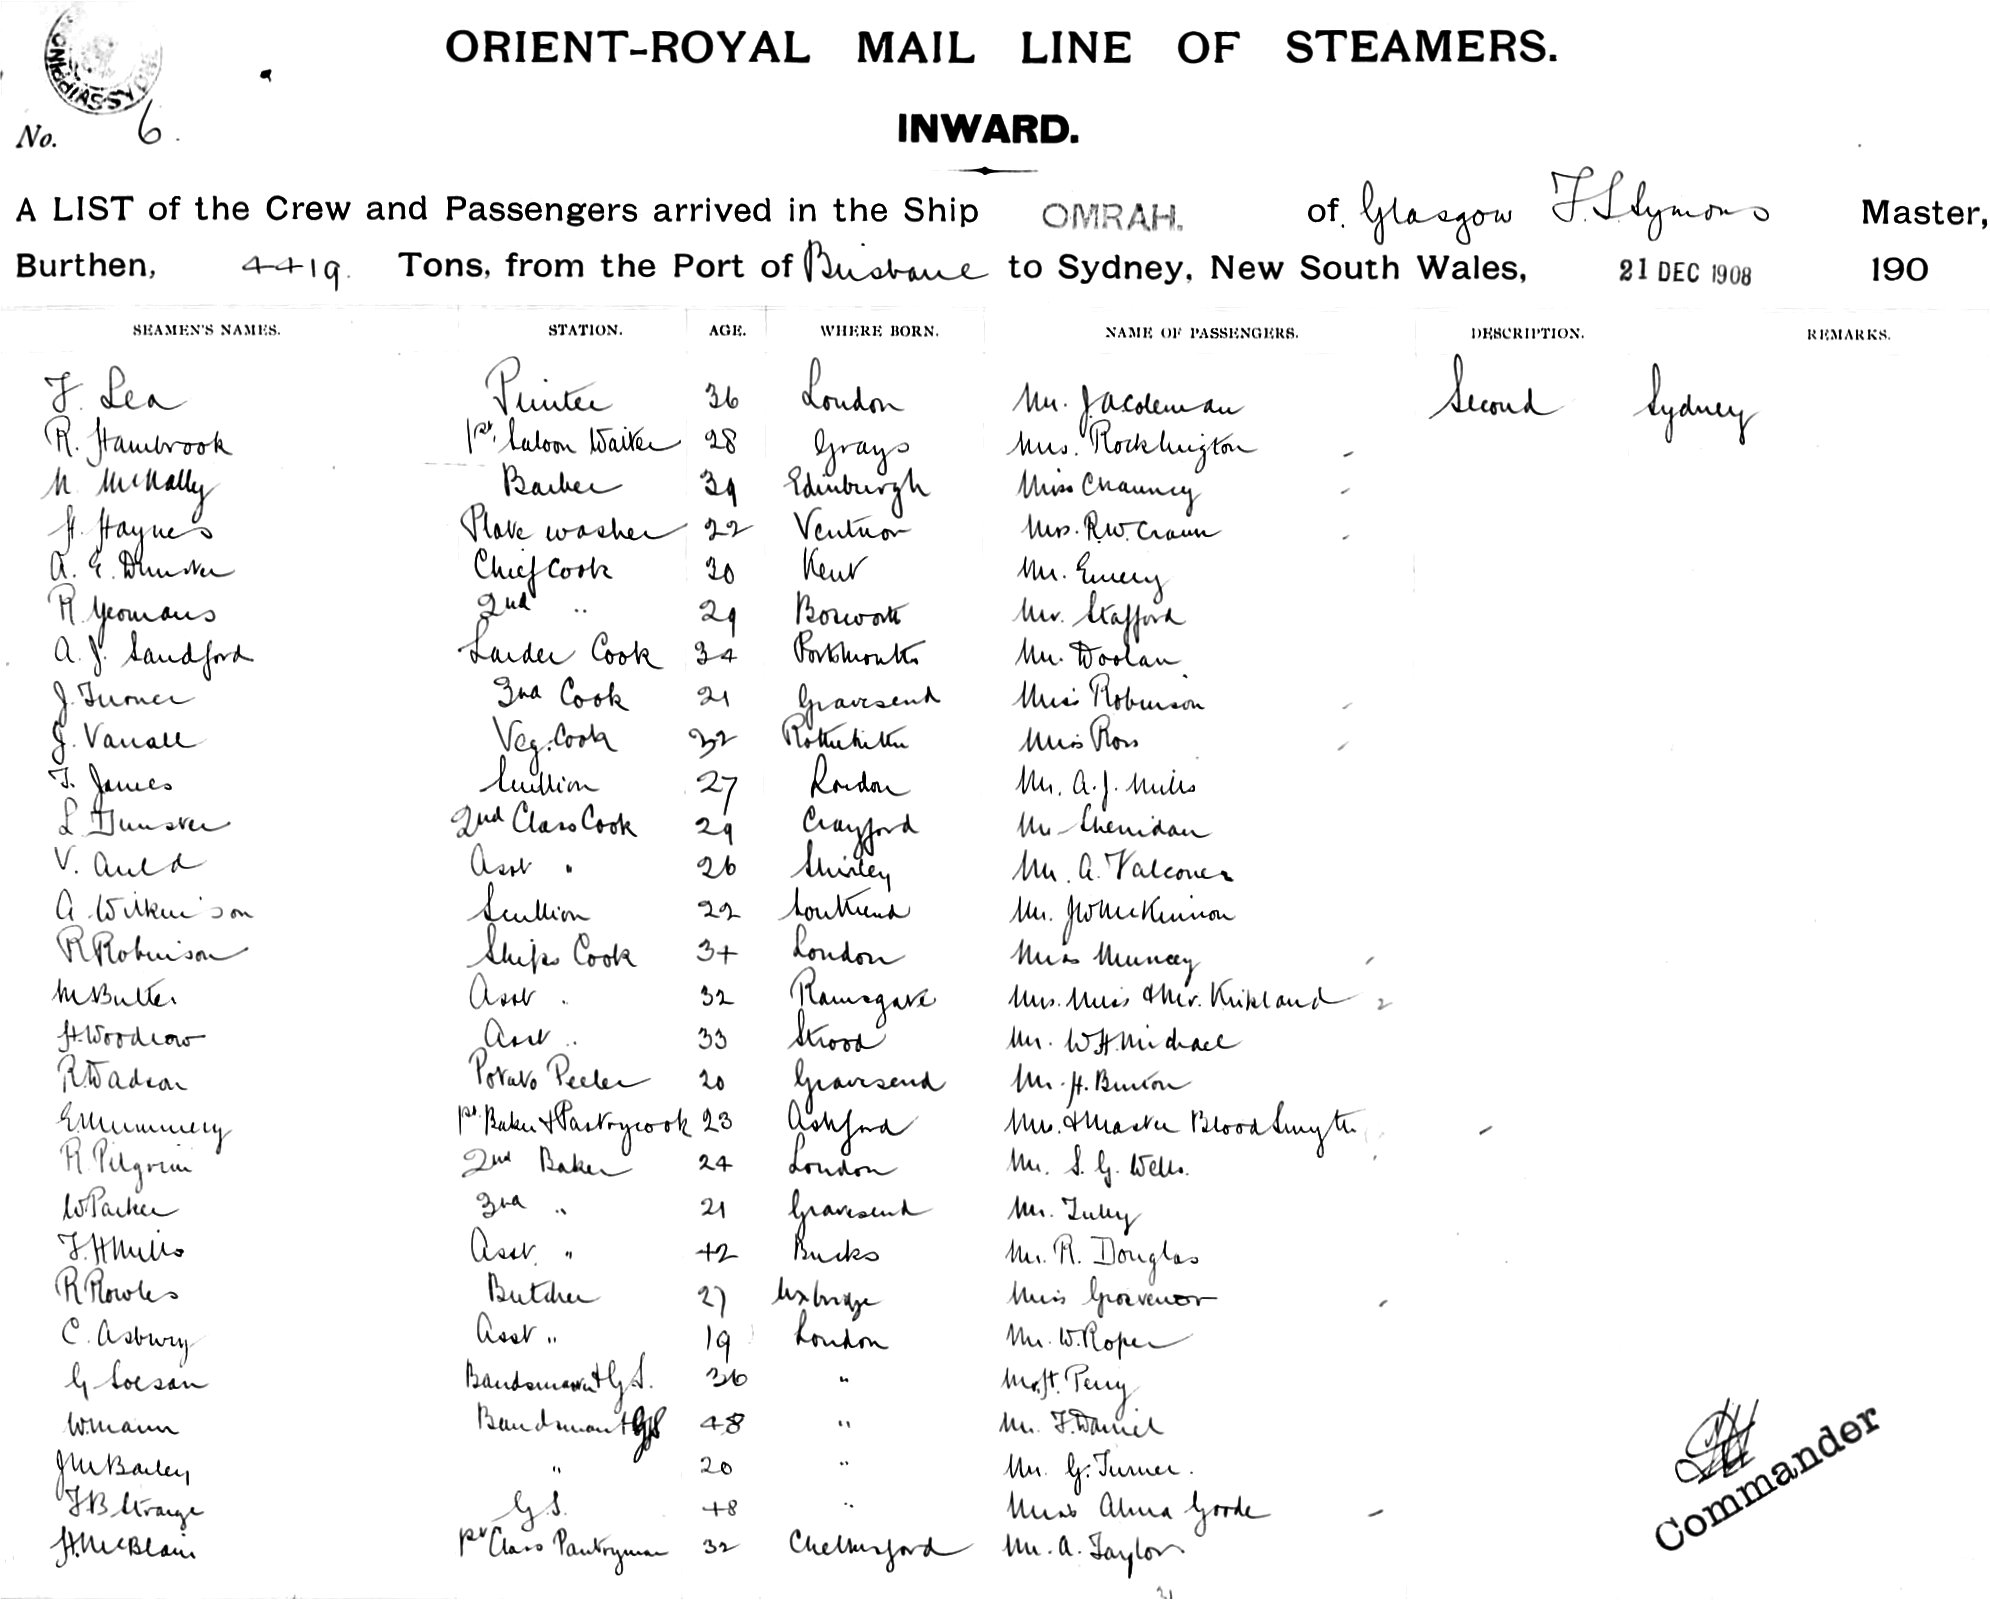 ORIENT-ROYAL MAIL LINE OF STEAMERS.
No. 6.
INWARD.
A LIST of the Crew and Passengers arrived in the Ship OMRAH. of Glasgow F.S.Symons Master,
Burthen, 4419. Tons, from the Port of Brisbane to Sydney, New South Wales, 21 DEC 1908 190
SEAMEN'S NAMES. STATION. AGE. WHERE BORN. NAME OF PASSENGERS. DESCRIPTION. REMARKS.
F. Lea Printer 36 London Mr. J.A Coleman Second Sydney
R. Hambrook 1st. Saloon Waiter 28 Grays Mrs. Rocklington
N McNally Barber 39 Edinburgh Miss Chauncy
H. Haynes Plate washer 22 Ventnor Mrs. R.W. Craun
A. E. Dunster Chief Cook 30 Kent Mr. Emery
R. Yeomans 2nd " 29 Bosworth Mr. Stafford
A. J. Sandford Larder Cook 34 Portsmouth Mr. Woolan
J. Turner 3rd Cook 21 Gravesend Miss Robinson
J. Vanall Veg. Cook 32 Rotherhithe Miss Ross
T. James Scullion 27 London Mr. A. J. Mills
L Dunster 2nd Class Cook 29 Crayford Mr Sheridan
V. Auld Asst " 26 Shirley Mr. A. Falconer
A Wilkinson Scullion 22 Southend Mr. J W McKinnon
R Robinson Ships Cook 34 London Miss Muncey
M Butter Asst . 32 Ramsgate Mrs. Miss & Mr. Kirkland 2
H. Woodrow Asst .. 33 Strood Mr. W H Michael
R. Wadson Potato Peeler 20 Gravesend Mr. H. Burton
E Mummery 1st. Baker & Pastrycook 23 Ashford Mrs. & Master Blood Smyth
R. Pilgrim 2nd Baker 24 London Mr. S. G. Wells.
W Parker 3rd " 21 Gravesend Mr. Tully
F. H Mills Asst. " 42 Bucks Mr. R. Douglas
R Rowles Butcher 27 Uxbridge Miss Grosvenor
C. Asbury Asst " 19 London Mr. W. Roper
G Soesan Bandsman & G S. 36 " Mr. H. Perry
W. Mann Bandsman & GS 48 " Mr. F. Daniel
J M Bailey " 20 " Mr. G. Turner.
F B Strange G. S. 48 " Miss Alma Goode
H. McBlain 1st Class Pantryman 32 Chelmsford Mr. A. Taylor
Commander